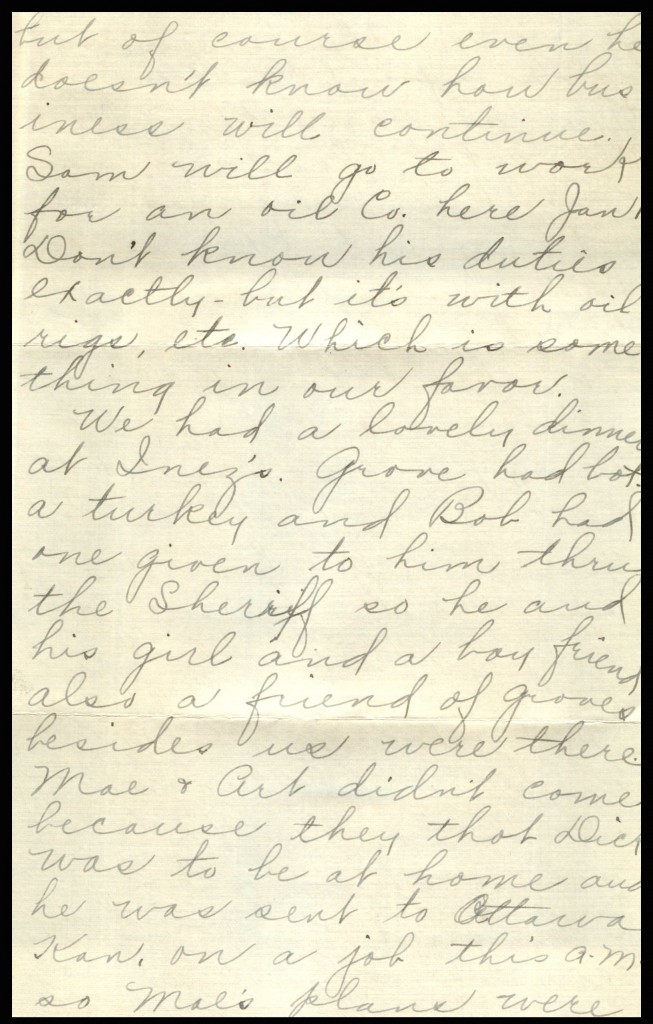 but of course even he
doesn't know how bus
iness will continue.
Sam will go to work
for an oil Co. here Jan 1
Don't know his duties
exactly - but it's with oil
rigs, etc. Which is some
thing in our favor.
We had a lovely dinner
at Inez's. Grove had bot.
a turkey and Bob had
one given to him thru
the Sheriff so he and
his girl and a boy friend
also a friend of Groves
besides us were there.
Mae & Art didn't come
because they thot Dick
was to be at home and
he was sent to Ottawa
Kan. on a job this a.m.
so Mae's plans were